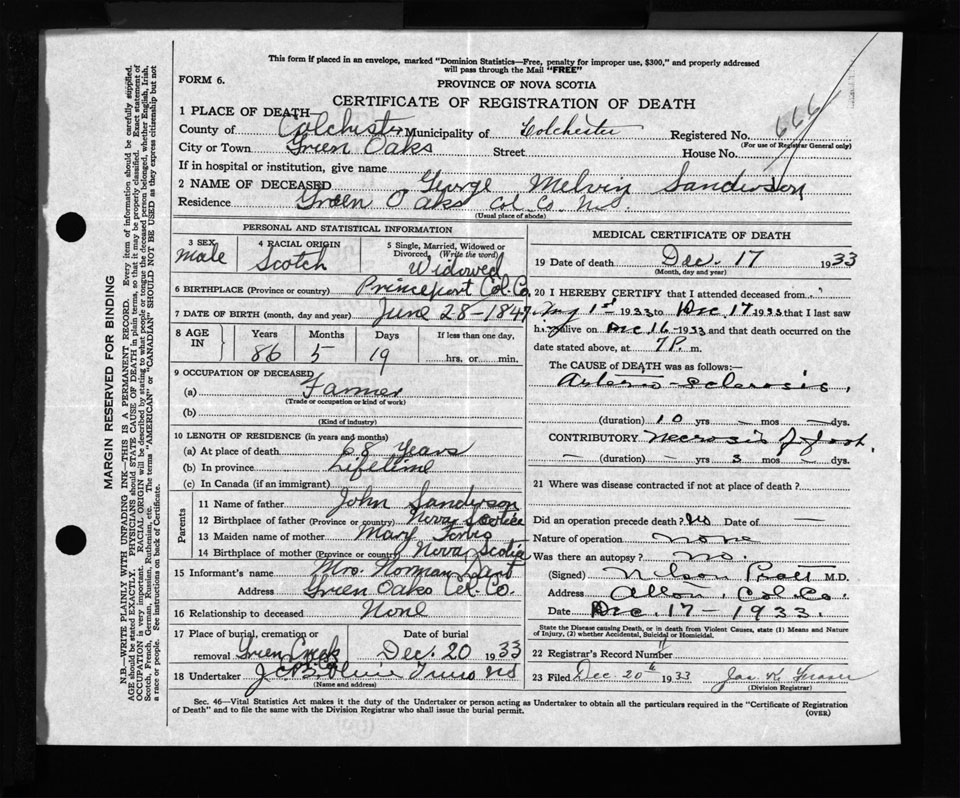 This form if placed in an envelope, marked "Dominion Statistics—Free, penalty for improper use, $300," and properly addressed
will pass through the Mail "FREE"
FORM 6.
PROVINCE OF NOVA SCOTIA
CERTIFICATE OF REGISTRATION OF DEATH
1 PLACE OF DEATH
County of Colchester Municipality of Colchester Registered No. 666
(For use of Registrar General only)
City or Town Green Oaks Street House No.
If in hospital or institution, give name
2 NAME OF DECEASED George Melvin Sanderson
Residence Green Oaks Col. Co. N.S.
(Usual place of abode)
PERSONAL AND STATISTICAL INFORMATION
3 SEX
Male
4 RACIAL ORIGIN
Scotch
5 Single, Married, Widowed or
Divorced, (Write the word)
Widowed
6 BIRTHPLACE (Province or country) Princeport Col. Co.
7 DATE OF BIRTH (month, day and year) June 28-1847
8 AGE
IN
Years Months Days If less than one day,
86 5 19 hrs. or min.
9 OCCUPATION OF DECEASED
(a) Farmer
(Trade or occupation or kind of work)
(b)
(Kind of industry)
10 LENGTH OF RESIDENCE (in years and months)
(a) At place of death 68 Years
(b) In province Lifetime
(c) In Canada (if an immigrant)
Parents
11 Name of father John Sanderson
12 Birthplace of father (Province or country) Nova Scotia
13 Maiden name of mother Mary
14 Birthplace of mother (Province or country) Nova Scotia
15 Informant's name Mrs. Norman Dent
Address Green Oaks Col. Co.
16 Relationship to deceased None
17 Place of burial, cremation or Date of burial
removal Green Creek Dec. 20 1933
18 Undertaker
(Name and address)
MEDICAL CERTIFICATE OF DEATH
19 Date of death Dec. 17 1933
(Month, day and year)
20 I HEREBY CERTIFY that I attended deceased from
1st 1933 to Dec 17 1933 that I last saw
h alive on Dec 16-1933 and that death occurred on the
date stated above, at 7 P. m.
The CAUSE of DEATH was as follows:—
Arterio-sclerosis,
(duration) 10 yrs — mos — dys.
CONTRIBUTORY Necrosis of foot.
— (duration) — yrs 3 mos — dys.
21 Where was disease contracted if not at place of death?
Did an operation precede death? No Date of —
Nature of operation none
Was there an autopsy? no.
(Signed) Nelson Pratt M.D.
Address Alton, Col. Co.
Date Dec. 17-1933.
State the Disease causing Death, or in death from Violent Causes, state (1) Means and Nature
of Injury, (2) whether Accidental, Suicidal or Homicidal.
22 Registrar's Record Number
23 Filed Dec. 20th 1933 Jas. K. Fraser
(Division Registrar)
Sec. 46—Vital Statistics Act makes it the duty of the Undertaker or person acting as Undertaker to obtain all the particulars required in the "Certificate of Registration
of Death" and to file the same with the Division Registrar who shall issue the burial permit.
(OVER)
MARGIN RESERVED FOR BINDING
N.B.—WRITE PLAINLY, WITH UNFADING INK—THIS IS A PERMANENT RECORD. Every item of information should be carefully supplied.
AGE should be stated EXACTLY. PHYSICIANS should STATE CAUSE OF DEATH in plain terms, so that it may be properly classified. Exact statement of
OCCUPATION is very important. RACIAL ORIGIN will be described by stating to what people or tongue the deceased person belonged, whether English, Irish,
Scotch, French, German, Russian, Ruthenian, etc. The terms "AMERICAN" or "CANADIAN" SHOULD NOT BE USED as they express citizenship but not
a race or people. See instructions on back of Certificate.